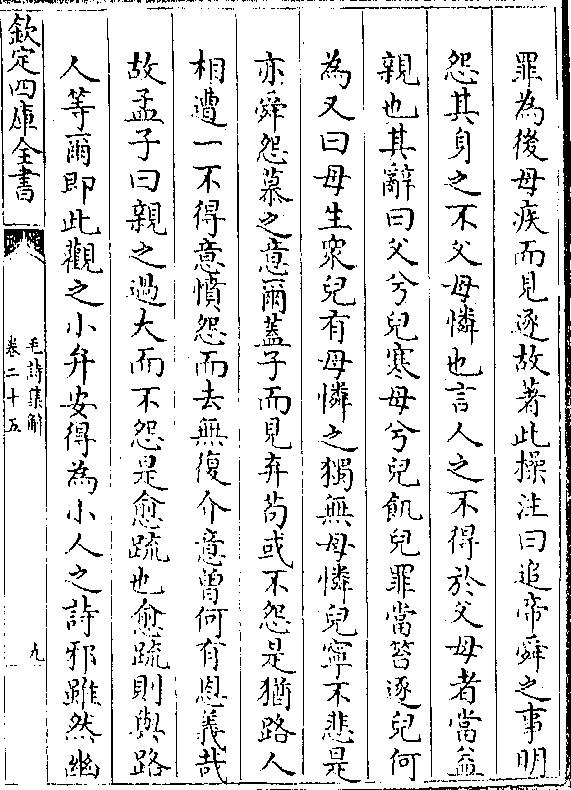 罪為後母疾而見逐故著此操注曰追帝舜之事明
怨其身之不父母憐也言人之不得於父母者當益
親也其辭曰父兮兒寒母兮兒飢兒罪當笞逐兒何
為又曰母生衆兒有母憐之獨無母憐兒寧不悲是
亦舜怨慕之意爾蓋子而見弃茍或不怨是猶路人
相遭一不得意憤怨而去無復介意曾何有恩義哉
故孟子曰親之過大而不怨是愈疏也愈疏則與路
人等爾即此觀之小弁安得為小人之詩邪雖然幽
欽定四庫全書
毛詩集解
卷二十五
九